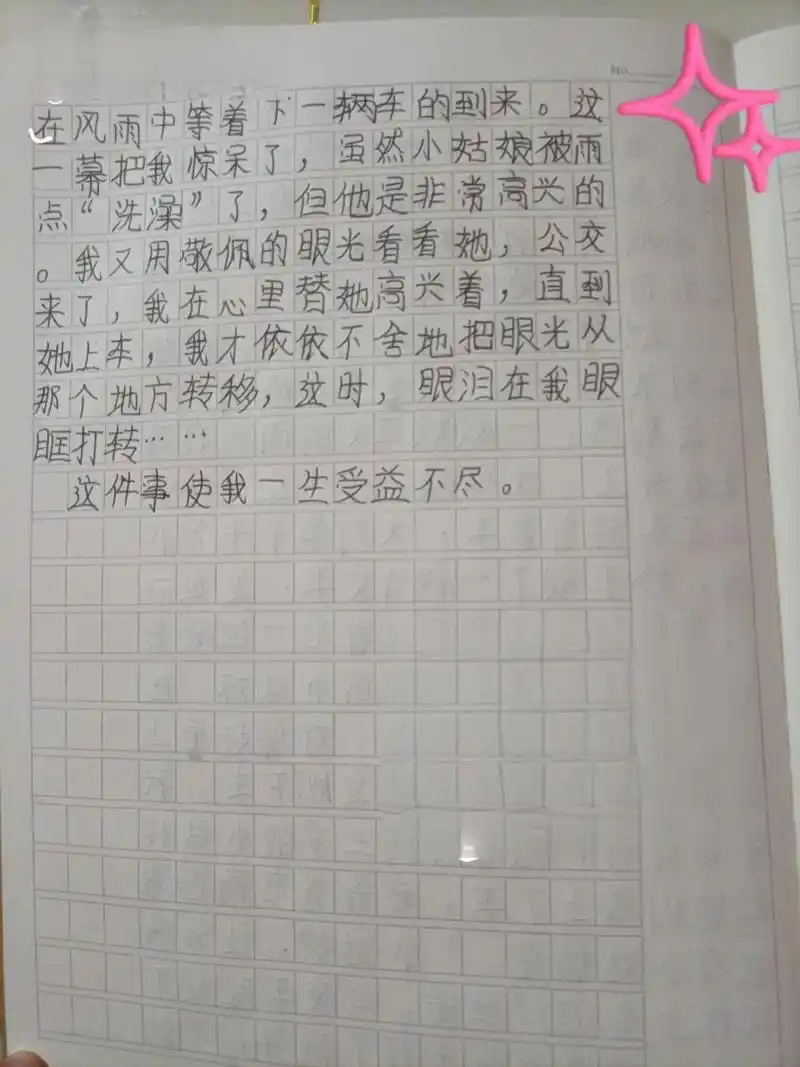 在风雨中等着下一辆车的到来。这
一幕把我惊呆了，虽然小姑娘被雨
点“洗澡”了，但他是非常高兴的
。我又用敬佩的眼光看看她，公交
来了，我在心里替她高兴着，直到
她上车，我才依依不舍地把眼光从
那个地方转移，这时，眼泪在我眼
眶打转……
这件事使我一生受益不尽。